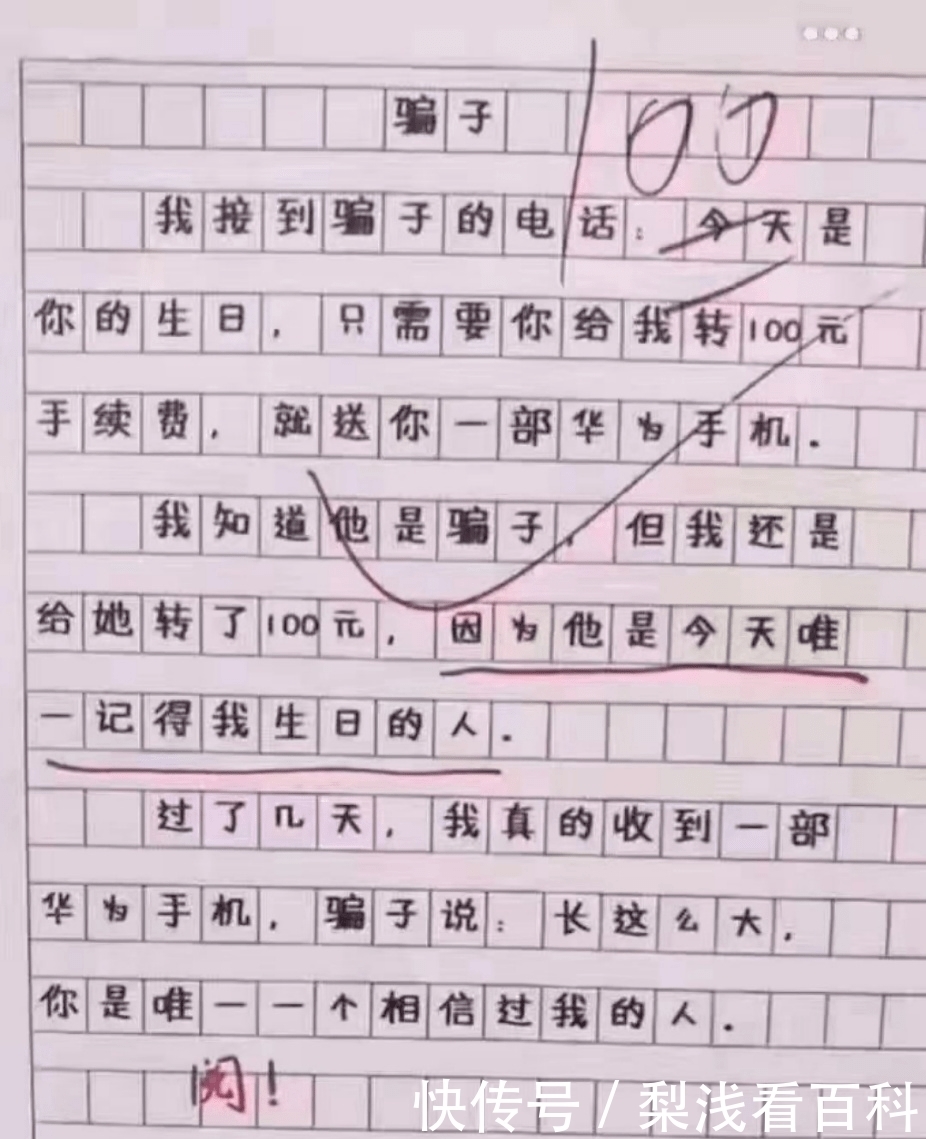 骗子
100
我接到骗子的电话：今天是
你的生日，只需要你给我转100元
手续费，就送你一部华为手机．
我知道他是骗子，但我还是
给她转了100元，因为他是今天唯
一记得我生日的人．
过了几天，我真的收到一部
华为手机，骗子说：长这么大，
你是唯一一个相信过我的人．
阅！
快传号 / 梨浅看百科